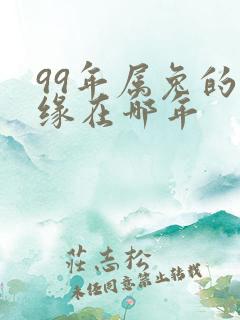 99年属兔的
缘在哪年
莊志松
未经同意禁止转载